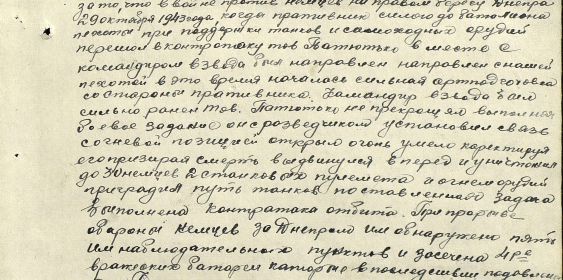 за то, что в войне против немцев на правом берегу Днепра
29 октября 1943 года, когда пративник силою до батальона
пехоты при поддержки танков и самоходных орудий
перешол в контратаку тов Патютько в месте с
командиром взвода был направлен направлен с нашей
пехотой в это время началась сильная артподготовка
со стороны пративника. Командир взвода был
сильно ранен тов. Патютько не прекрощяя выполнял
боевое задание он с розведчиком установил связь
с огневой позицией открыл огонь умело каректируя
его призирая смерть выдвинулся в перед и уничтожил
до 30 немцев 2 станковых пулемета и огнем орудий
приградил путь танков поставленная задача
выполнена контратака отбита. При прорыве
обароны немцев за Днепром им обнаружено пять
им наблюдательных пунктов и засечена 4ре
вражеских батареи которые в последствии подавлены